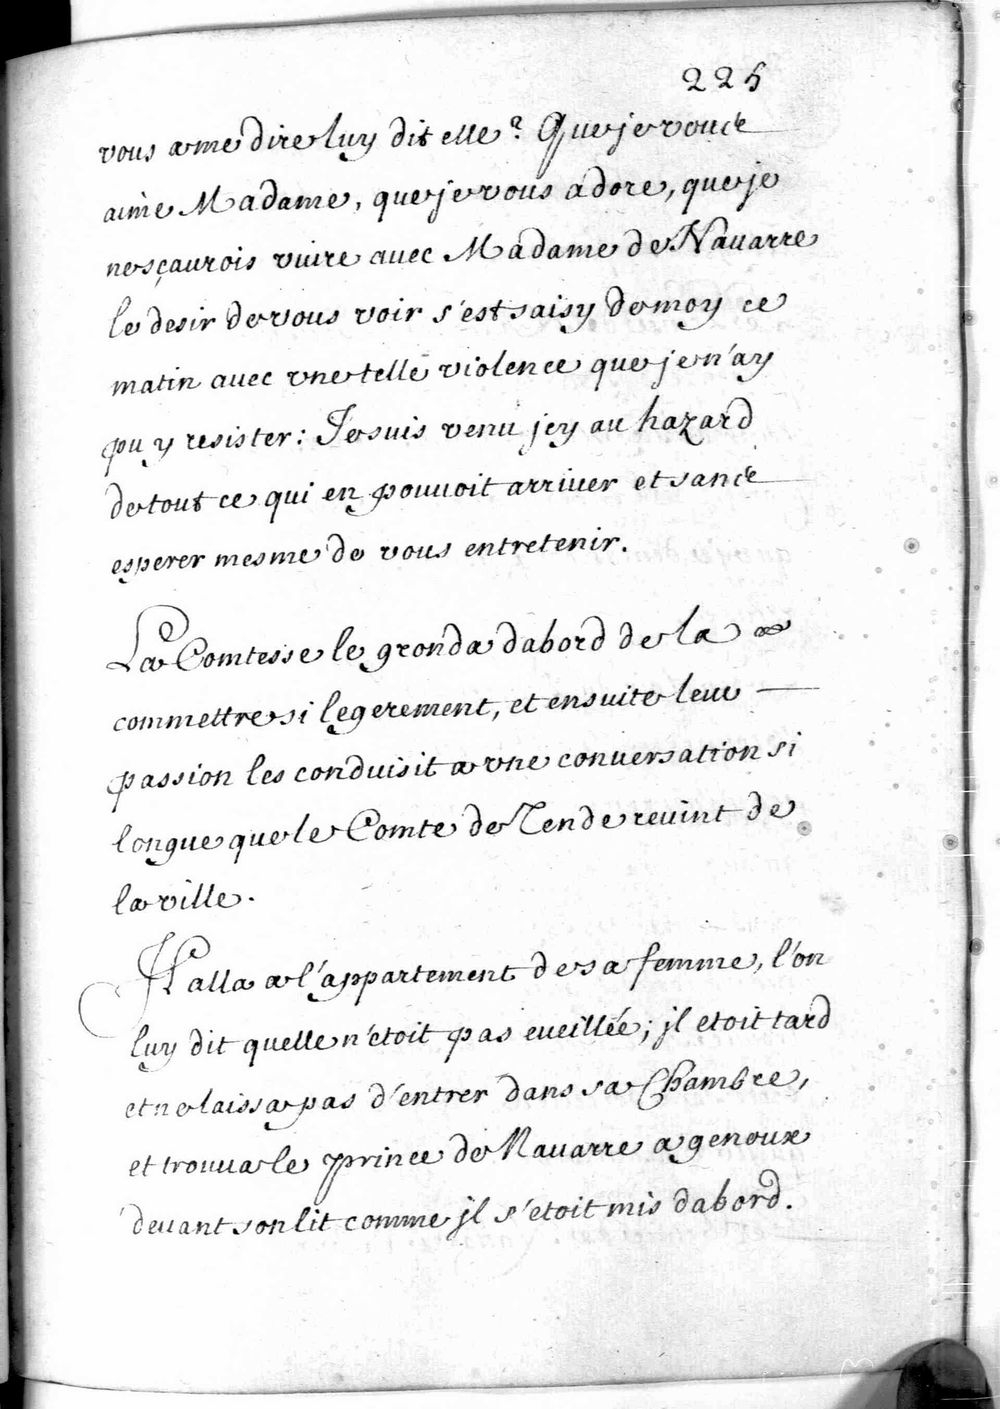 225
vous a me dire luy dit elle? Que je vous
aime Madame, que je vous adore, que je
ne sçaurois vivre avec Madame de Navarre
le desir de vous voir s'est saisy de moy ce
matin avec vne telle violence que je n'ay
pu y resister: Je suis venu jcy au hazard
de tout ce qui en pouuoit arriuer et sans
esperer mesme de vous entretenir.
La Comtesse le gronda dabord de la
commettre si legerement, et ensuite leur
passion les conduisit a vne conuersation si
longue que le Comte de Tende reuint de
la ville.
Jl alla a l'appartement de sa femme, l'on
luy dit quelle n'étoit pas eueillée; jl etoit tard
et ne laissa pas d'entrer dans sa Chambre,
et trouua le prince de Nauarre a genoux
deuant son lit comme jl s'étoit mis dabord.